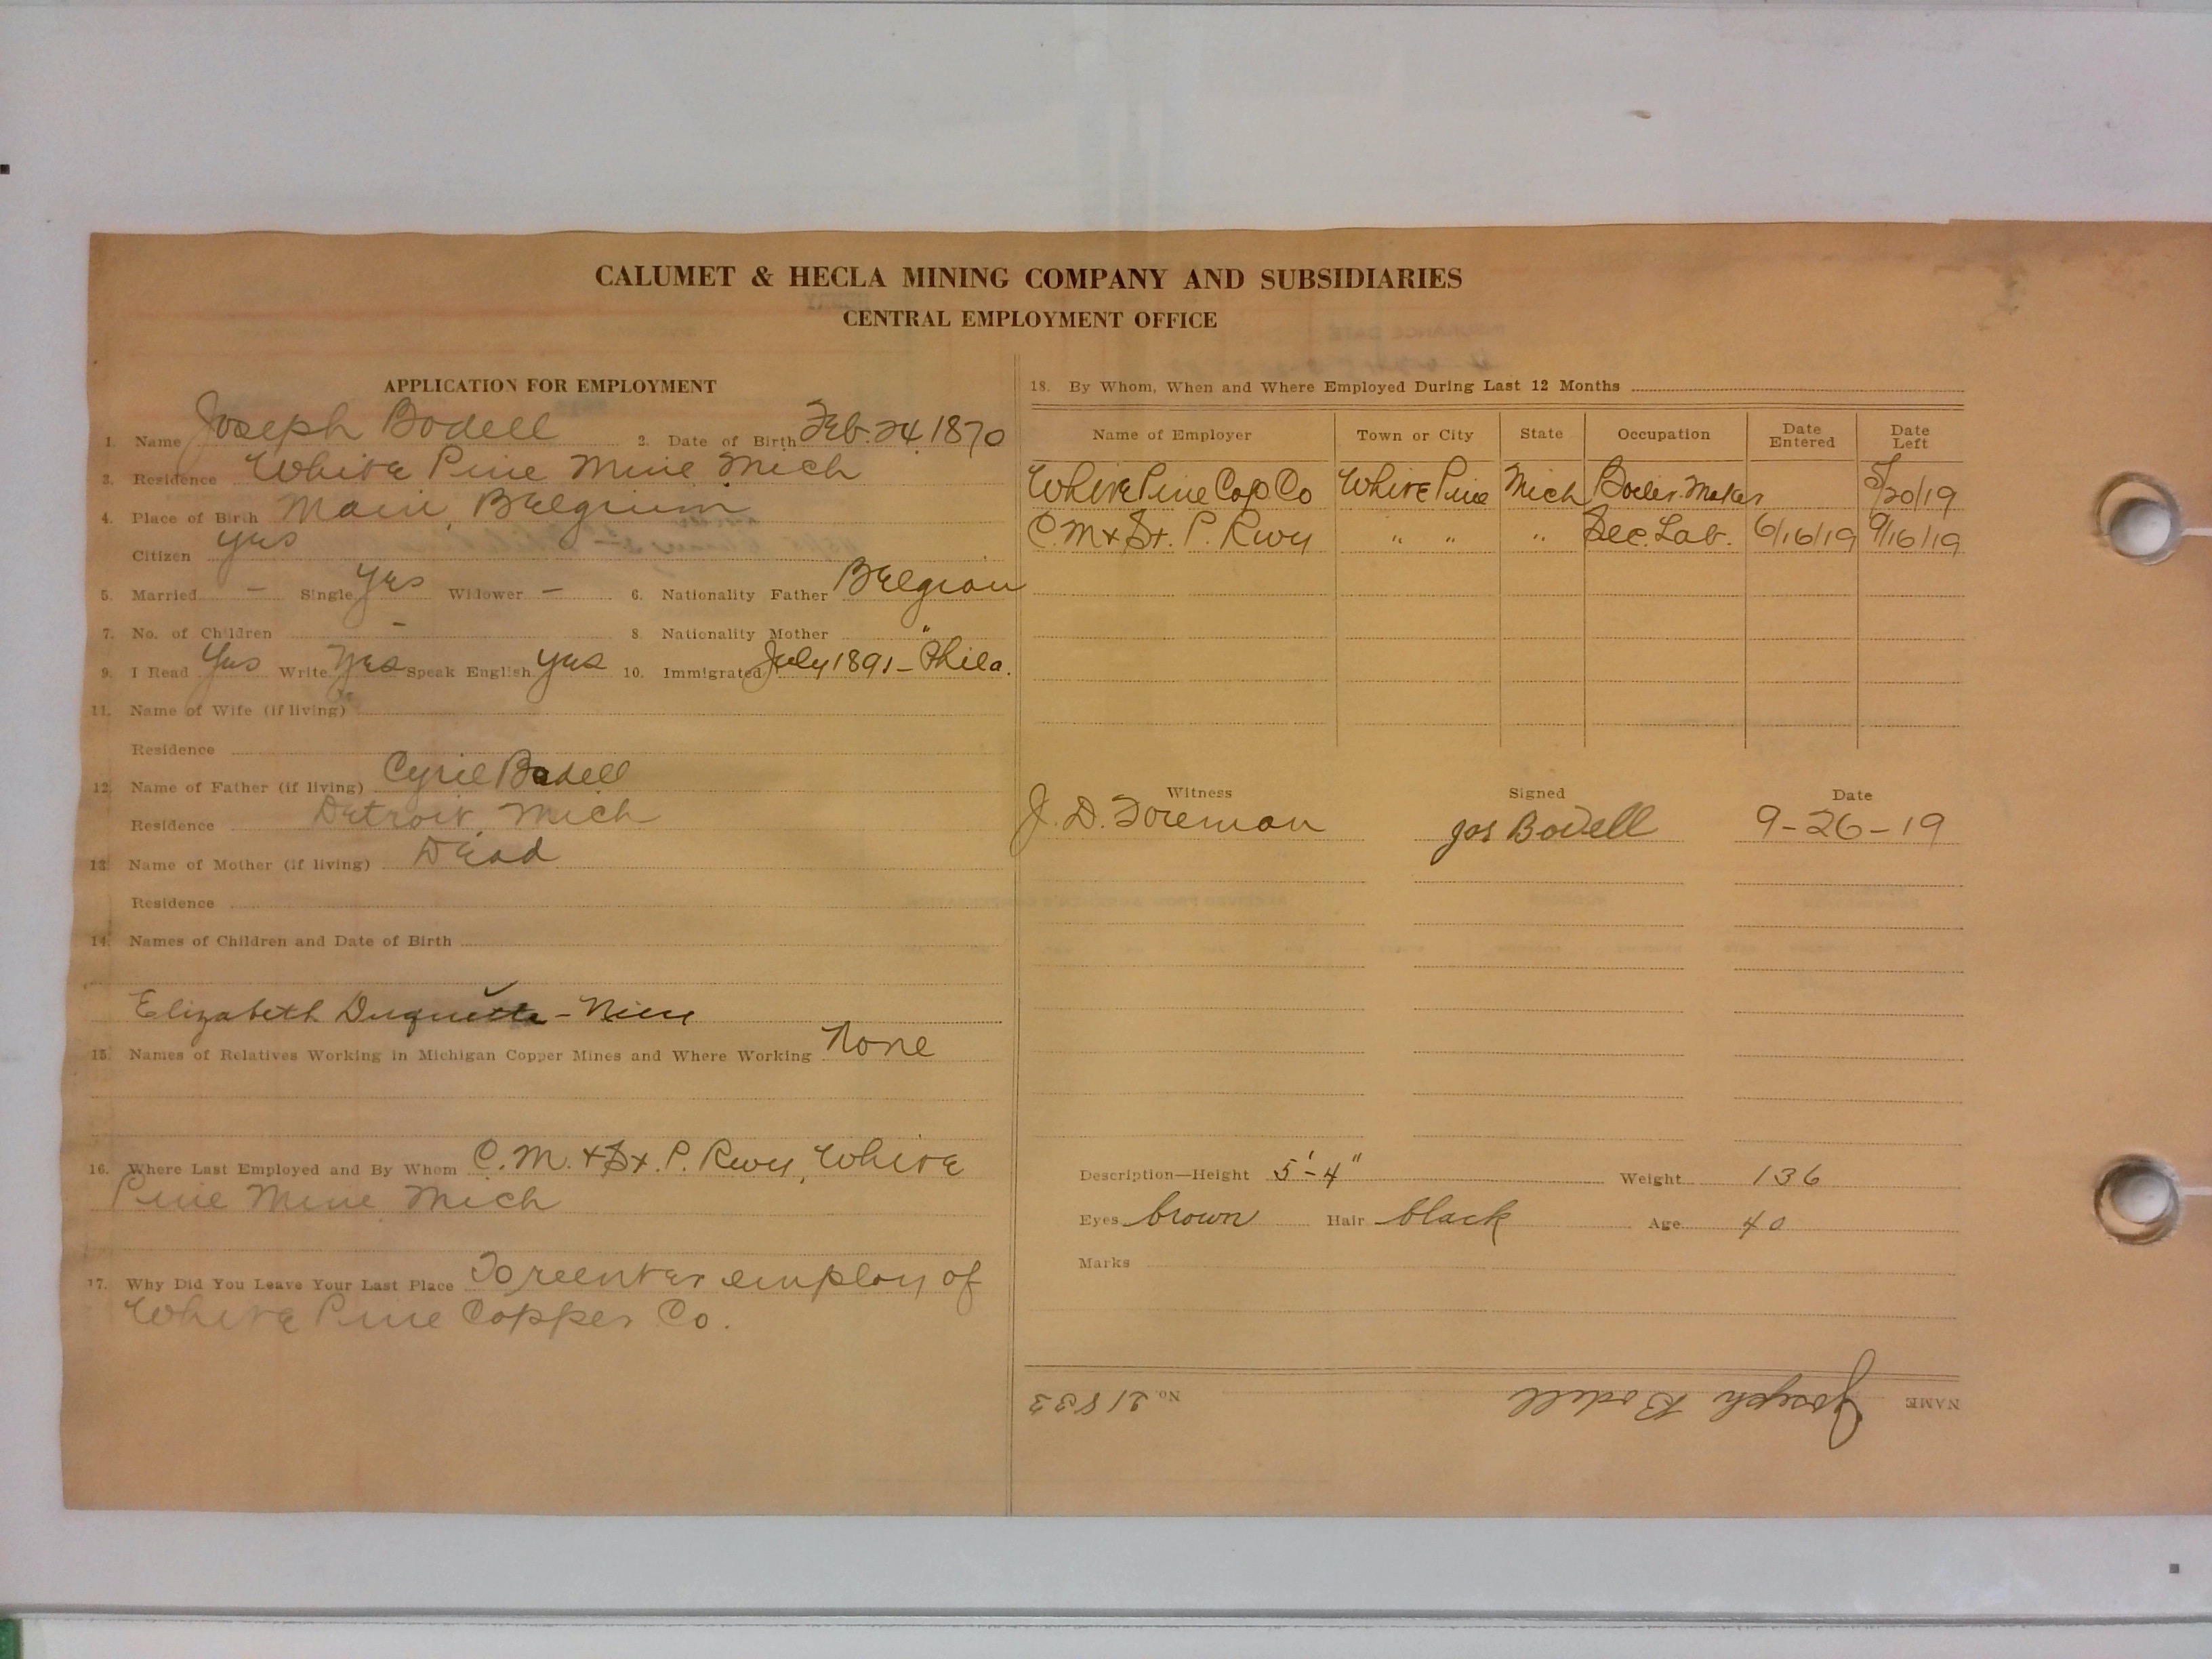 CALUMET & HECLA MINING COMPANY AND SUBSIDIARIES
CENTRAL EMPLOYMENT OFFICE
APPLICATION FOR EMPLOYMENT
1. Name Joseph Bodell 2. Date of Birth Feb. 24, 1870
3. Residence White Pine Mine Mich
4. Place of Birth Belgium
Citizen yes
5. Married - Single yes Widower - 6. Nationality Father Belgian
7. No. of Children - 8. Nationality Mother "
9. I Read Yes Write Yes Speak English yes 10. Immigrated July 1891 - Phila.
11. Name of Wife (if living)
Residence
12. Name of Father (if living) Cyril Bodell
Residence Detroit, Mich
13. Name of Mother (if living) Dead
Residence
14. Names of Children and Date of Birth
Elizabeth Duquette - Niece
15. Names of Relatives Working in Michigan Copper Mines and Where Working None
16. Where Last Employed and By Whom C. M. + St. P. Rwy, White
Pine Mine Mich
17. Why Did You Leave Your Last Place To reenter employ of
White Pine Copper Co.
18. By Whom, When and Where Employed During Last 12 Months
Name of Employer Town or City State Occupation Date Entered Date Left
White Pine Cop. Co White Pine Mich Boiler Maker 5/20/19
C. M + St. P. Rwy " " " Sec. Lab. 6/16/19 9/16/19
Witness Signed Date
J. D. Foreman Jos Bodell 9-26-19
Description—Height 5'-4" Weight 136
Eyes brown Hair black Age 40
Marks
NAME Joseph Bodell No. 21833